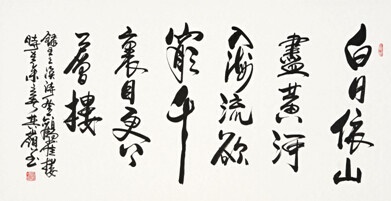 白日依山
盡黃河
入海流欲
窮千
裏目更上
一層樓
錄王之渙詩登鸛雀樓
時